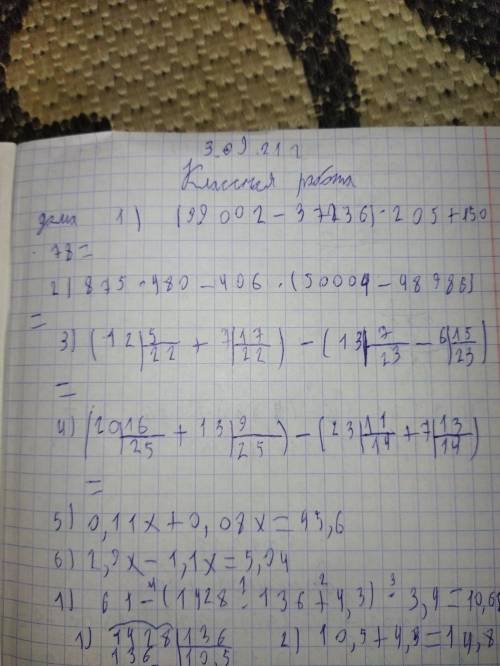 3.09.21 г
Классная работа
дома 1) (99 002 - 37236) · 205 + 150
· 78 =
2) 875 · 480 - 406 · (50004 - 48986)
=
3) (12 5/22 + 7 17/22) - (13 7/23 - 6 15/23)
=
4) (20 16/25 + 13 9/25) - (23 11/14 + 7 13/14)
=
5) 0,11x + 0,08x = 45,6
6) 2,9x - 1,1x = 5,04
1) 61 - (1428 : 136 + 4,3) · 3,4 = 10,68
1) 1428 | 136 2) 10,5 + 4,3 = 14,8
136 10,5